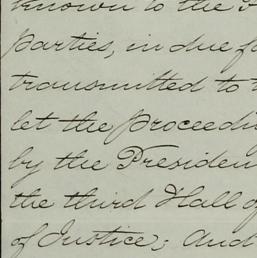 known to the
parties, in due
transmitted to
let the proceedin
by the Presiden
the third Hall of
of Justice; And